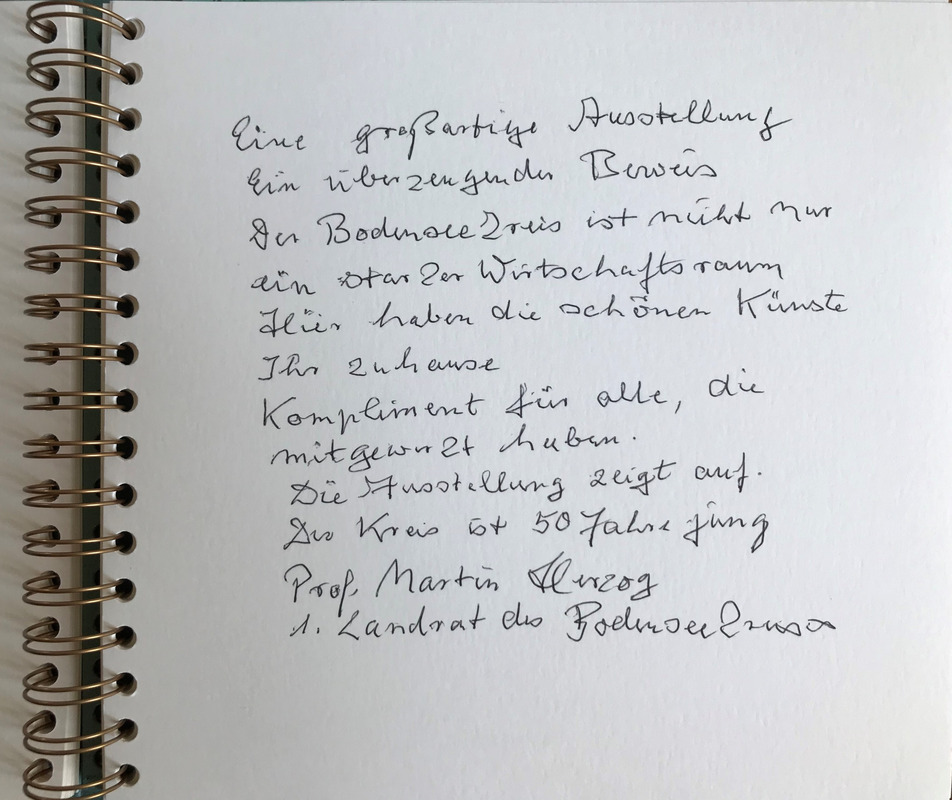 Eine großartige Ausstellung
Ein überzeugender Beweis
Der Bodenseekreis ist nicht nur
ein starker Wirtschaftsraum
Hier haben die schönen Künste
Ihr zuhause
Kompliment für alle, die
mitgewirkt haben.
Die Ausstellung zeigt auf.
Der Kreis ist 50 Jahre jung
Prof. Martin Herzog
1. Landrat des Bodenseekreises